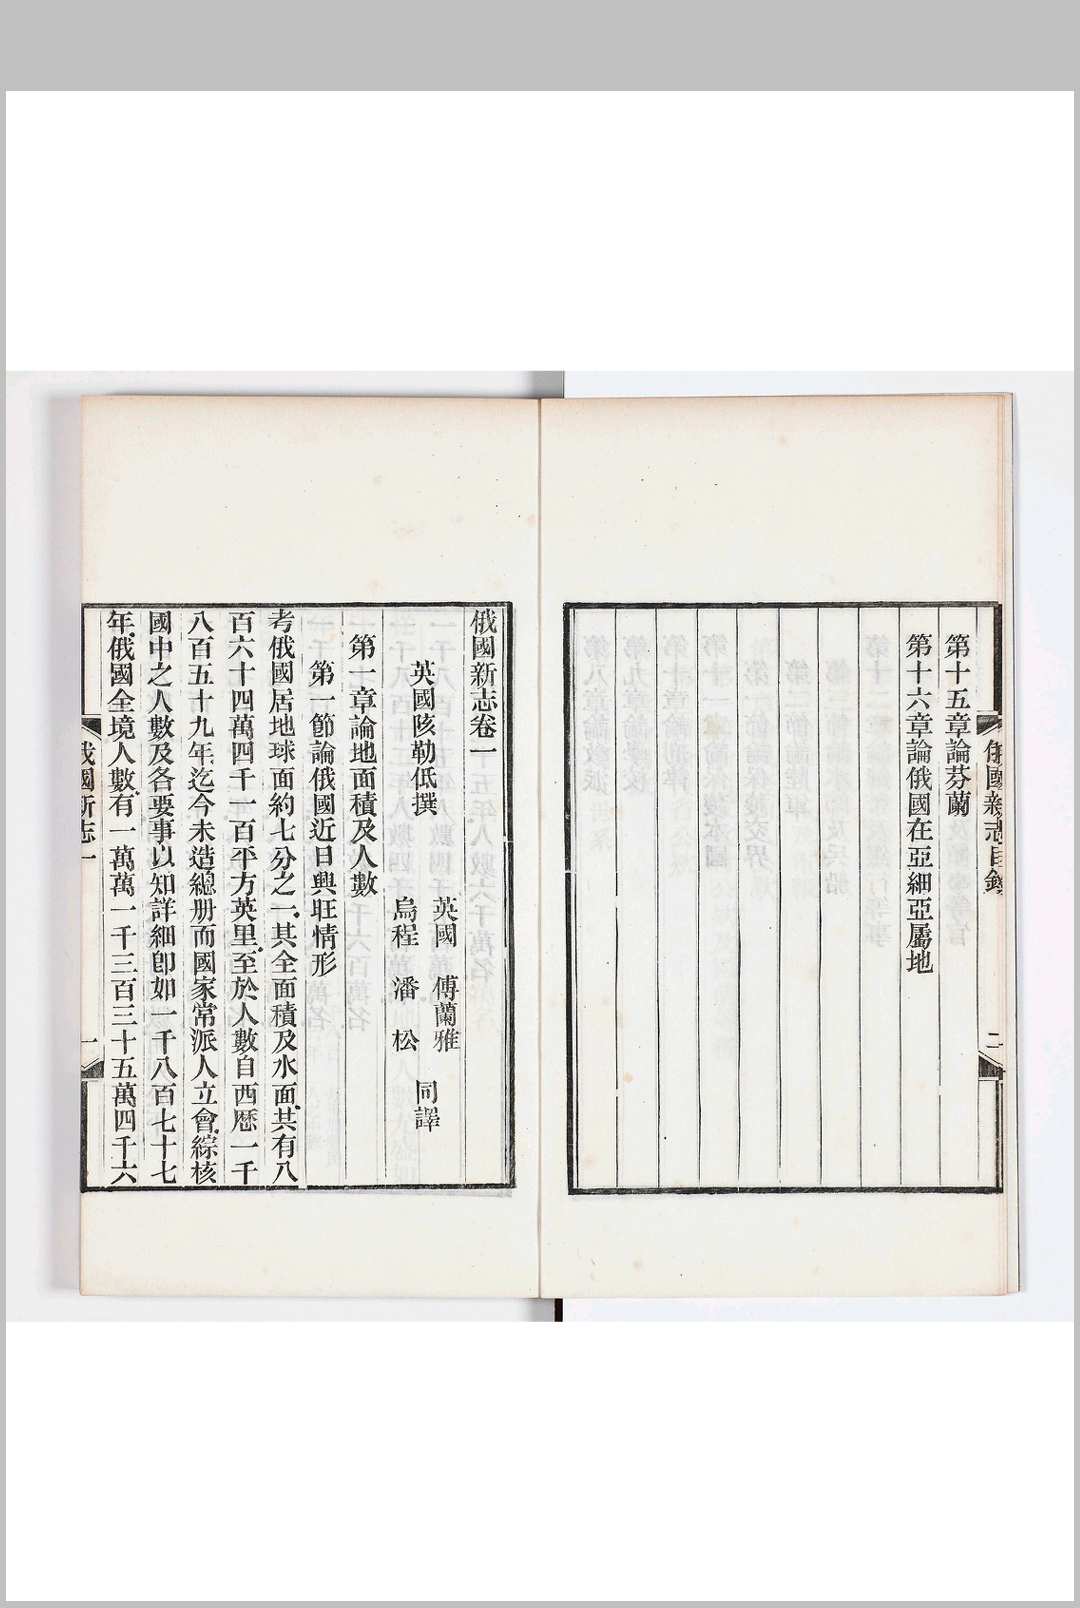 第十五章論芬蘭
第十六章論俄國在亞細亞屬地
俄國新志目錄
二
俄國新志卷一
英國陔勒低撰
英國 傅蘭雅
烏程 潘 松
同譯
第一章論地面積及人數
第一節論俄國近日興旺情形
考俄國居地球面約七分之一其全面積及水面共有八
百六十四萬四千一百平方英里至於人數自西厯一千
八百五十九年迄今未造總册而國家常派人立會綜核
國中之人數及各要事以知詳細卽如一千八百七十七
年俄國全境人數有一萬萬一千三百三十五萬四千六
俄國新志一
一